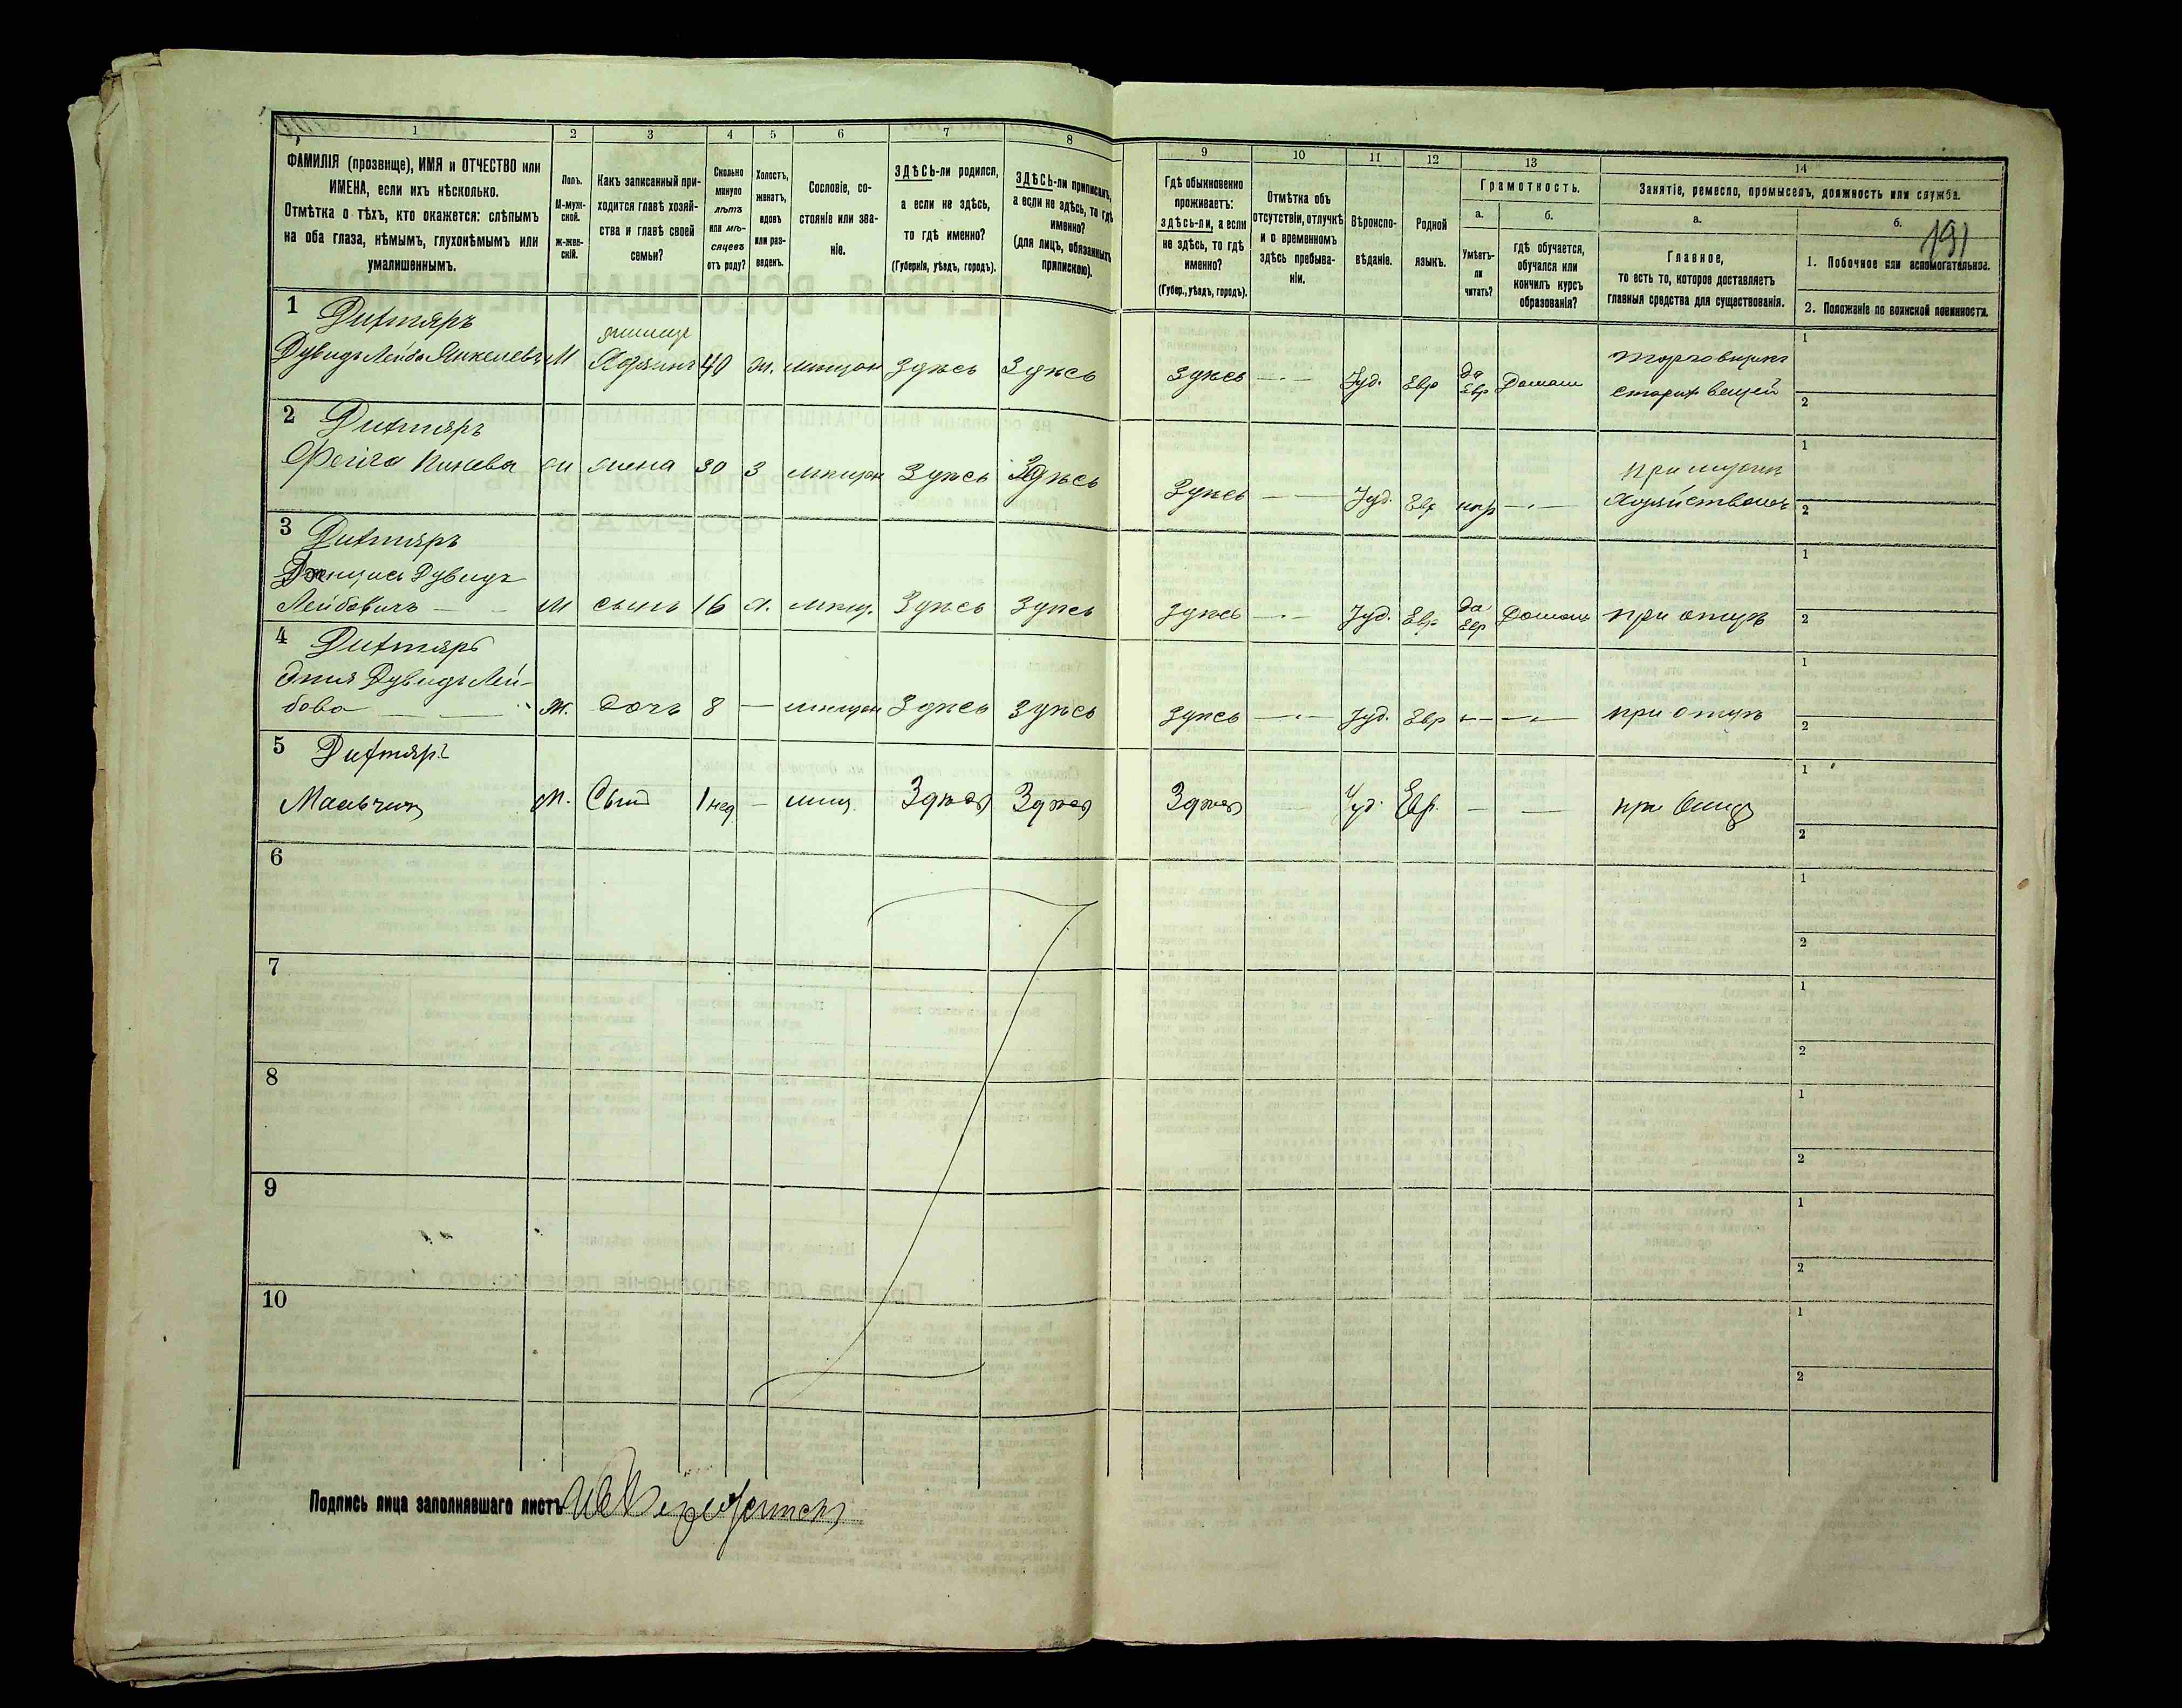 1 2 3 4 5 6 7 8 9 10 11 12 13 14
ФАМИЛІЯ (прозвище), ИМЯ и ОТЧЕСТВО или
ИМЕНА, если ихъ нѣсколько.
Отмѣтка о тѣхъ, кто окажется: слѣпымъ
на оба глаза, нѣмымъ, глухонѣмымъ или
умалишеннымъ.
Полъ.
М-муж-
ской.
ж-жен-
скій.
Какъ записанный при-
ходится главѣ хозяй-
ства и главѣ своей
семьи?
Сколько
минуло
лѣтъ
или мѣ-
сяцевъ
отъ роду?
Холостъ,
женатъ,
вдовъ
или раз-
веденъ.
Сословіе, со-
стояніе или зва-
ніе.
ЗДѢСЬ-ли родился,
а если не здѣсь,
то гдѣ именно?
(Губернія, уѣздъ, городъ).
ЗДѢСЬ-ли приписанъ,
а если не здѣсь, то гдѣ
именно?
(для лицъ, обязанныхъ
припискою).
Гдѣ обыкновенно
проживаетъ:
здѣсь-ли, а если
не здѣсь, то гдѣ
именно?
(Губер., уѣздъ, городъ).
Отмѣтка объ
отсутствіи, отлучкѣ
и о временномъ
здѣсь пребыва-
ніи.
Вѣроиспо-
вѣданіе.
Родной
языкъ.
Грамотность.
а.
Умѣетъ-
ли
читать?
б.
гдѣ обучается,
обучался или
кончилъ курсъ
образованія?
Занятіе, ремесло, промыселъ, должность или служба.
а.
Главное,
то есть то, которое доставляетъ
главныя средства для существованія.
б.
191
1. Побочное или вспомогательное.
2. Положеніе по воинской повинности.
1 Дихтяръ
Дувидъ Лейба Янкелевъ М Хозяинъ 40 ж. мѣщан Здѣсь Здѣсь Здѣсь — Іуд. Евр да Евр Домаш Торговецъ
старых вещей
1
2
2 Дихтяръ
Фейга жена 30 З мѣщан Здѣсь Здѣсь Здѣсь — Іуд. Евр нѣтъ — при мужѣ
хозяйством
1
2
3 Дихтяръ
Дувидъ
Лейбовичъ — М сынъ 16 х. мѣщ. Здѣсь Здѣсь Здѣсь — Іуд. Евр да Евр Домаш при отцѣ
1
2
4 Дихтяръ
Дувидъ Лей-
бова — ж. дочь 8 — мѣщан Здѣсь Здѣсь Здѣсь — Іуд. Евр — — при отцѣ
1
2
5 Дихтяръ
Мальчик М. Сын 1 нед — мѣщ. Здѣсь Здѣсь Здѣсь Іуд. Евр. — — при Отцѣ
1
2
6
1
2
7
1
2
8
1
2
9
1
2
10
1
2
Подпись лица заполнявшаго листъ